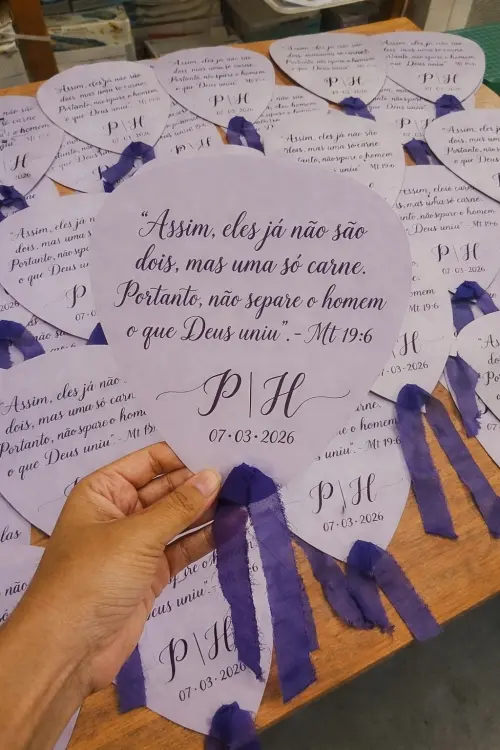 "Assim, eles já não são
dois, mas uma só carne.
Portanto, não separe o homem
o que Deus uniu". - Mt 19:6
P|H
07·03·2026